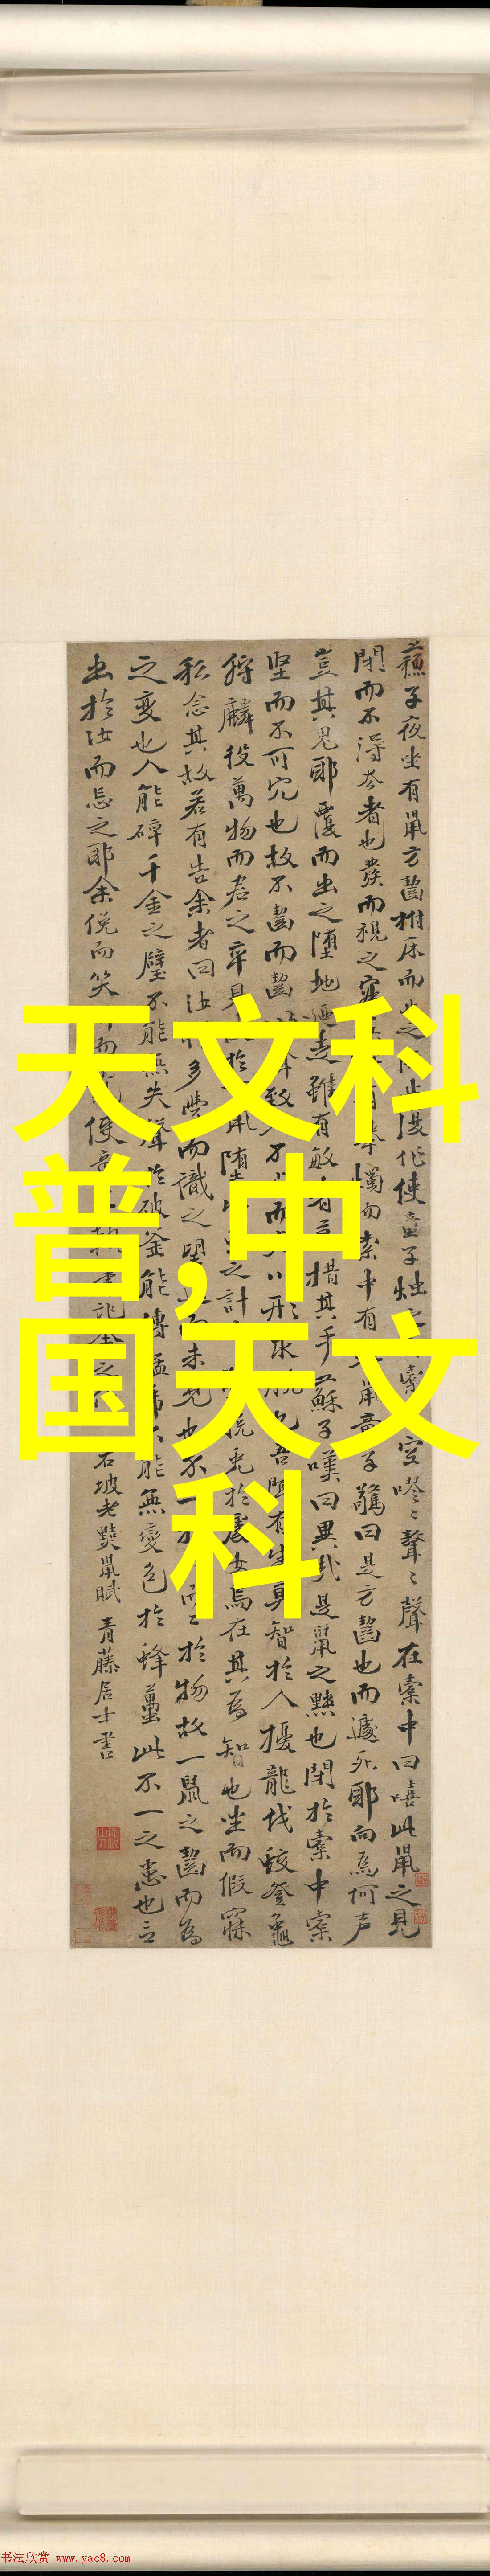 蘇子夜坐有鼠方齧拊床而止之止復作使童子燭之橐空嘐嘐聱聱聲在橐中曰嘻此鼠之見
閉而不得去者也發而視之燭而索中有鼠童子驚曰是方齧也而遽死耶向為何声
豈其鬼耶覆而出之堕地走雖有敏措其手蘇子嘆曰異哉是鼠之黠也閉於橐中橐
堅而不可穴也故不齧而齧致不而形求脫也吾聞有生莫智於人擾龍伐蛟登龜
狩麟役萬物而君之卒見於鼠堕之計脫兔於處女烏在其為智也坐而假寐
私念其故若有告余者曰汝多學而識之望而未見也不一於物故一鼠之齧而為
之變也人能碎千金之璧不能無失聲於破釜能搏猛虎不能無變色於蜂蠆此不一之患也言
出於汝而忘之耶余俛而笑而使童執筆記余之
右坡老黠鼠賦 青藤居士書
天文科
普,中
国天文
科
书法欣赏 www.yac8.com